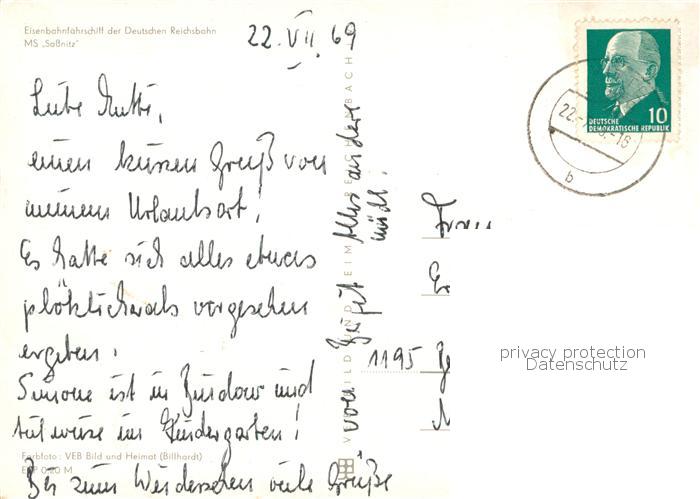 Eisenbahnfährschiff der Deutschen Reichsbahn
MS „Saßnitz"
22. VII. 69
Liebe Mutti,
einen kurzen Gruß von
meinem Urlaubsort!
Es hatte sich alles etwas
plötzlicher als vorgesehen
ergeben.
Simone ist in Zeuthen und
teilweise im Kindergarten!
Bis zum Wiedersehen viele Grüße
von
alles andere
mdl.
Frau
1195
VEB BILD UND HEIMAT REICHENBACH
Farbfoto: VEB Bild und Heimat (Billhardt)
EVP 0,20 M
DEUTSCHE
DEMOKRATISCHE REPUBLIK
10
22.
-18
b
privacy protection
Datenschutz